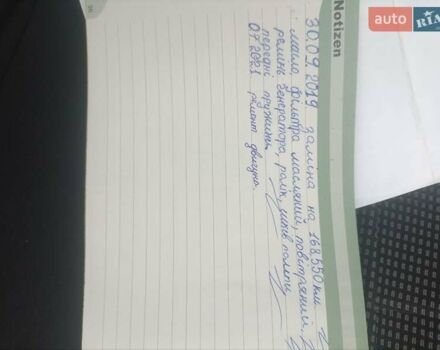 auto RIA
Notizen
30.09.2019 заміна на 168,550 км
масла, фільтра масляний, повітряний,
ремінь генератора, ролік, шків помпи,
передні пружини
07.2021 ремонт двигуна.